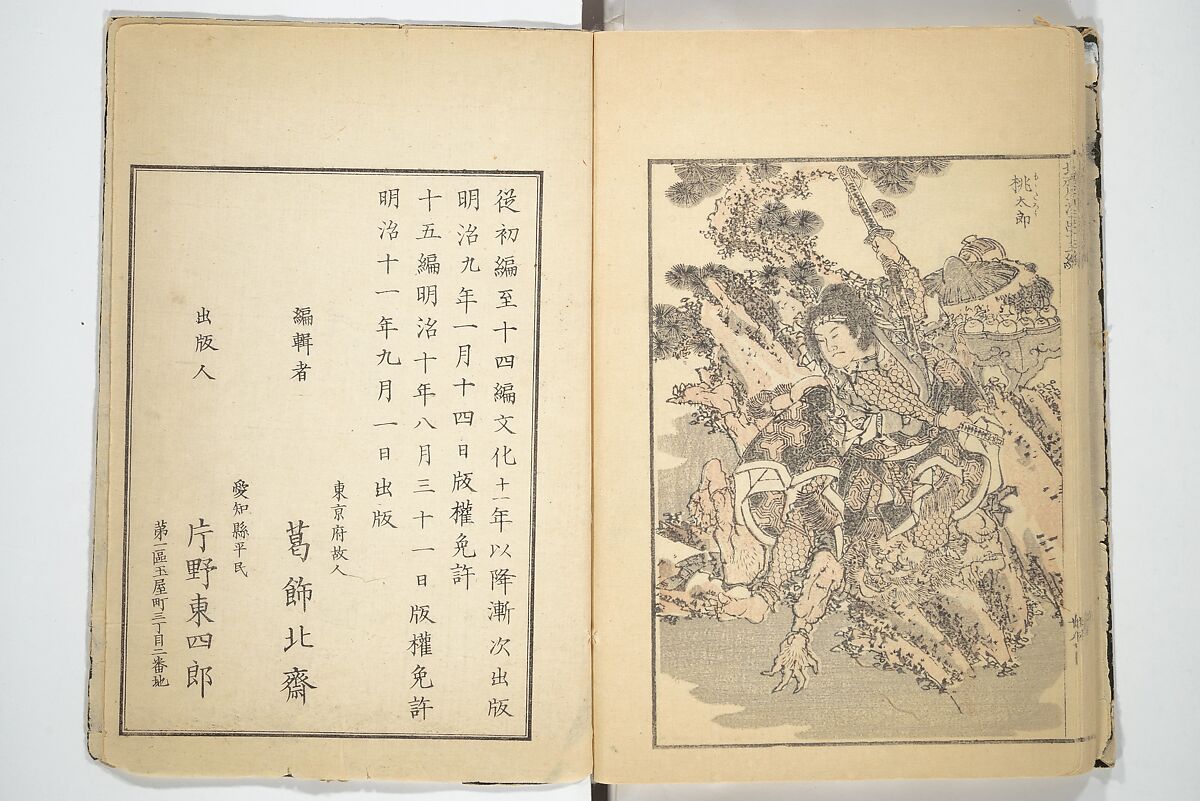 桃太郎
もゝたらう
從初編至十四編文化十一年以降漸次出版
明治九年一月十四日版權免許
十五編明治十年八月三十一日版權免許
明治十一年九月一日出版
東京府故人
編輯者 葛飾北齋
愛知縣平民
出版人 片野東四郎
第一區玉屋町三丁目二番地